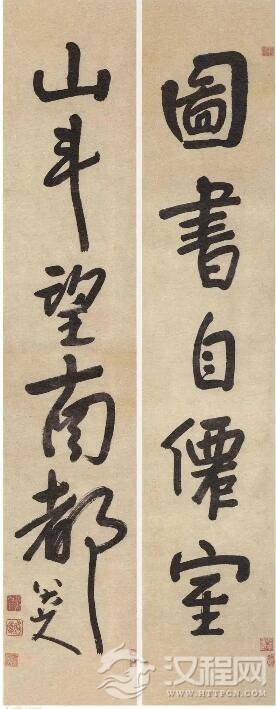 圖書自僊室
山斗望南都
八大山人
汉程网
HTTPCN.COM